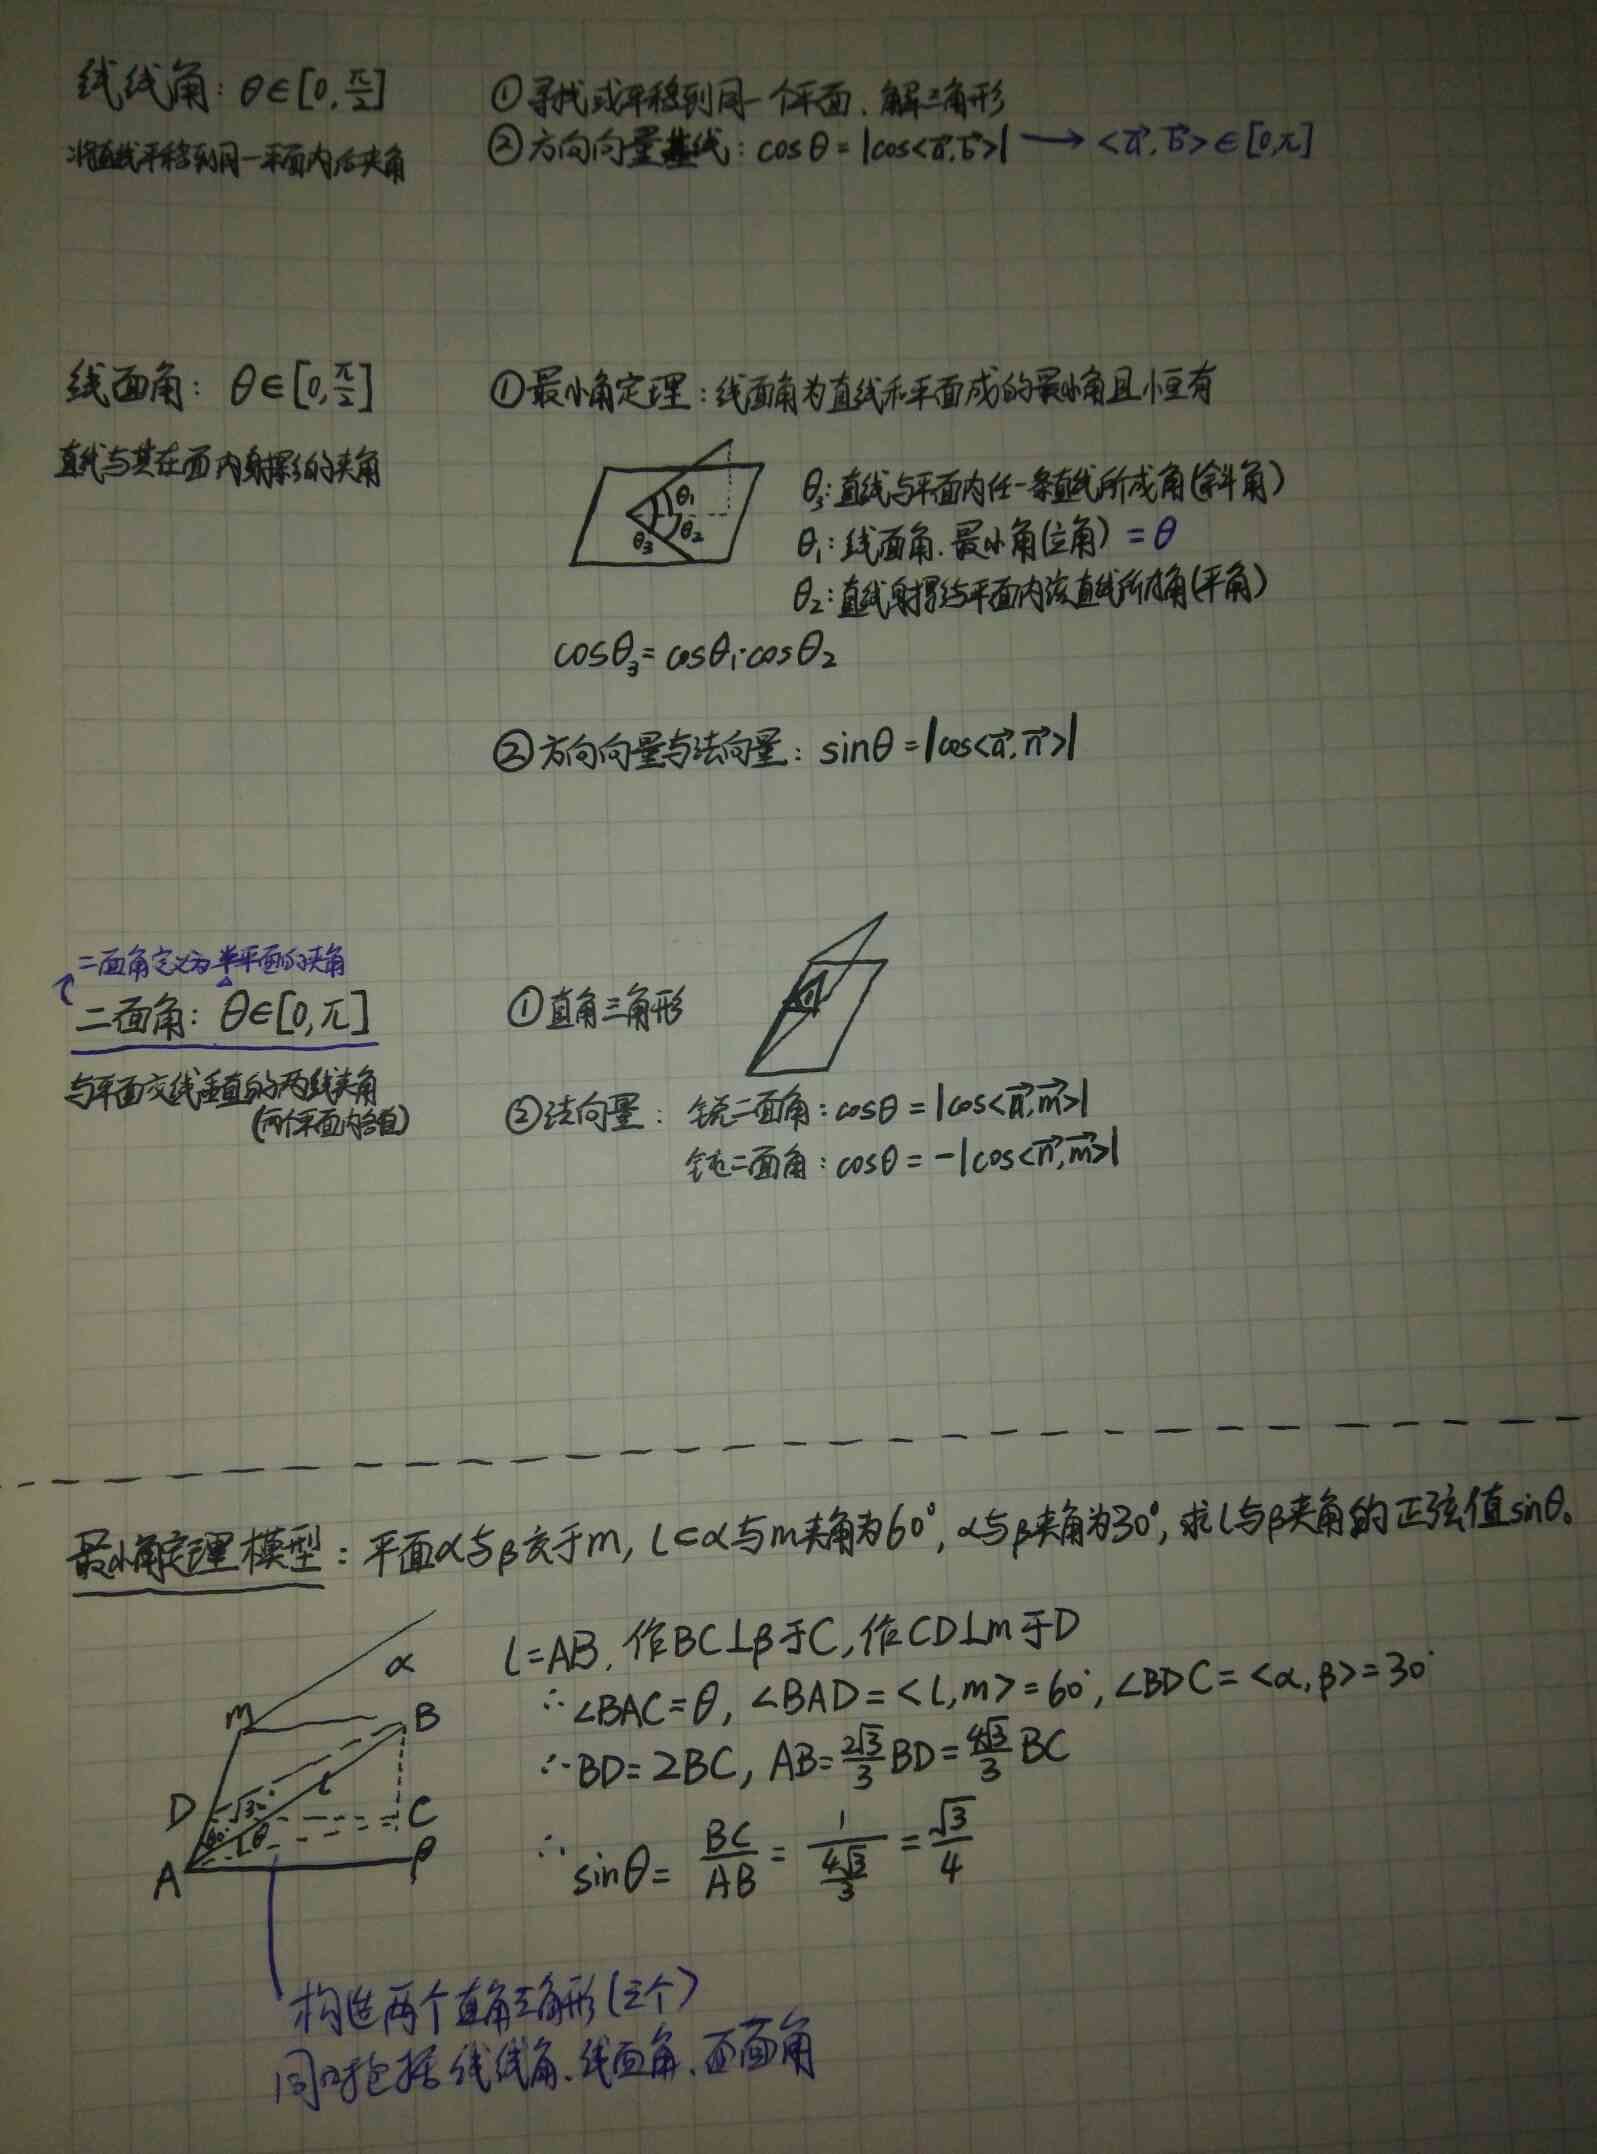 线线角：θ∈[0,π/2]
①寻找或平移到同一个平面．解三角形
将直线平移到同一平面内后夹角
②方向向量 线：cosθ=|cos<a⃗,b⃗>| → <a⃗,b⃗>∈[0,π]
线面角：θ∈[0,π/2]
①最小角定理：线面角为直线和平面成的最小角且恒有
直线与其在面内射影的夹角
θ₁
θ₂
θ₃
θ₃:直线与平面内任一条直线所成角(斜角)
θ₁:线面角．最小角(立角)=θ
θ₂:直线射影与平面内该直线所成角(平角)
cosθ₃=cosθ₁·cosθ₂
②方向向量与法向量：sinθ=|cos<a⃗,n⃗>|
二面角定义为半平面的夹角
二面角：θ∈[0,π]
①直角三角形
与平面交线垂直的两线夹角
(两个平面内各自)
②法向量：锐二面角：cosθ=|cos<n⃗,m⃗>|
钝二面角：cosθ=-|cos<n⃗,m⃗>|
最小角定理模型：平面α与β交于m，l⊂α与m夹角为60°，α与β夹角为30°，求l与β夹角的正弦值sinθ。
l=AB．作BC⊥β于C，作CD⊥m于D
∴∠BAC=θ，∠BAD=<l,m>=60°，∠BDC=<α,β>=30°
∴BD=2BC，AB=2√3/3 BD=4√3/3 BC
∴sinθ=BC/AB=1/(4√3/3)=√3/4
α
m
B
l
D
30°
C
60°
θ
A
β
构造两个直角三角形(三个)
同时包括线线角．线面角．面面角